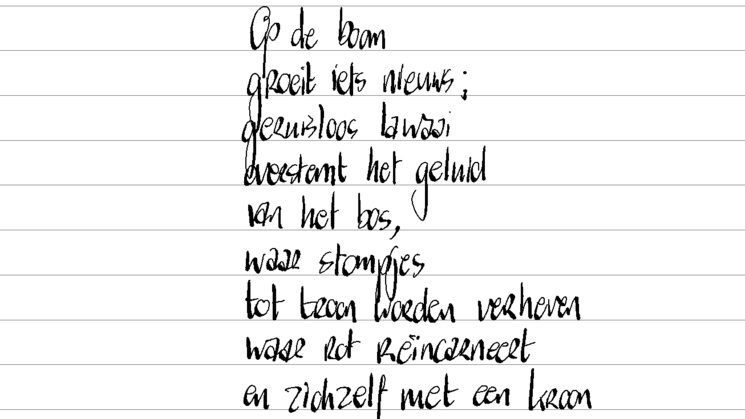 Op de boom
groeit iets nieuws;
geruisloos lawaai
overstemt het geluid
van het bos,
waar stompjes
tot troon worden verheven
waar rot reïncarneert
en zichzelf met een kroon